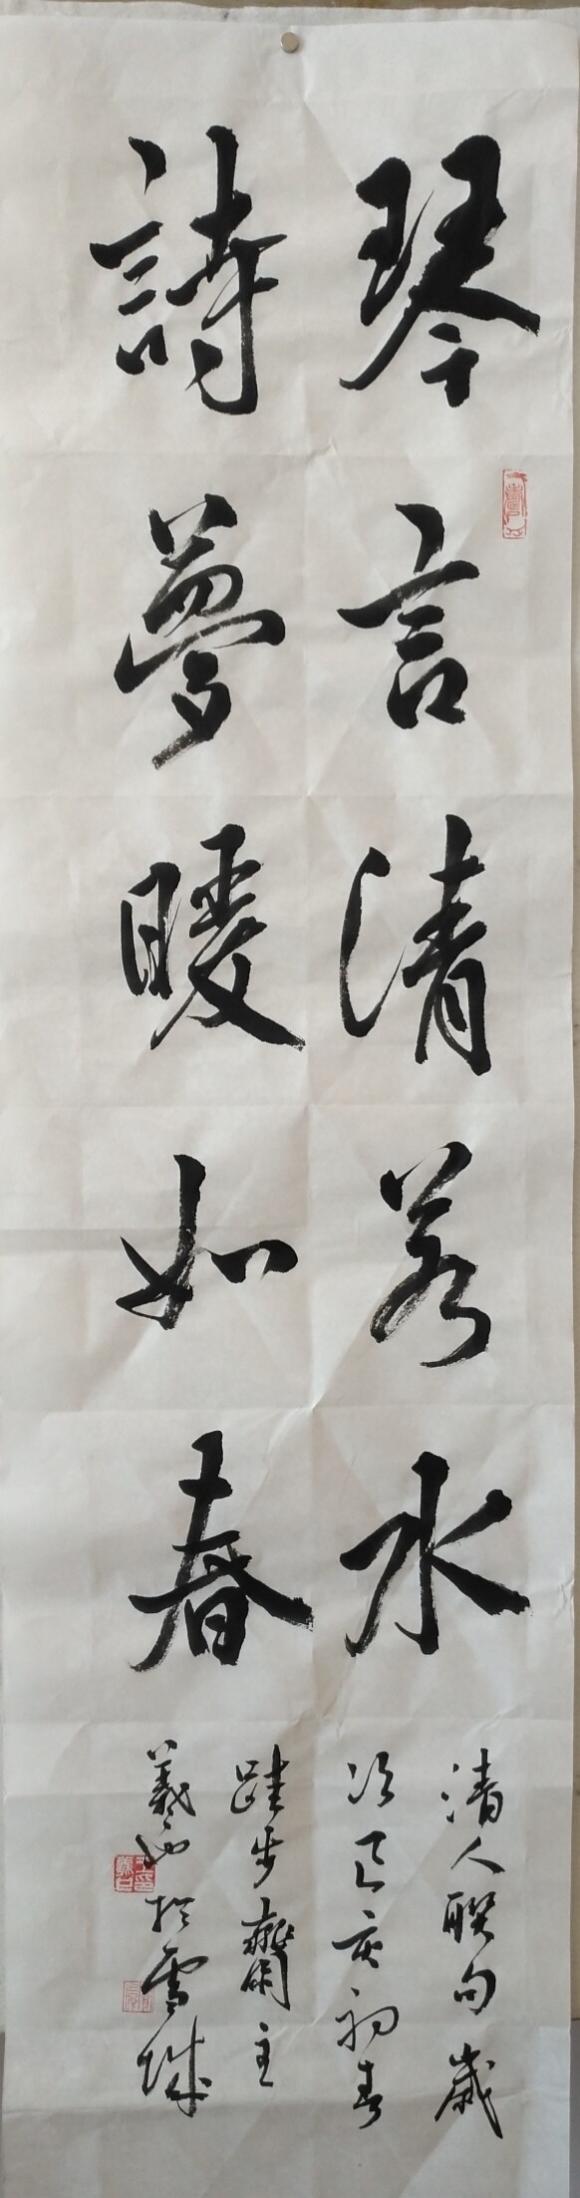 琴言清若水
詩夢暖如春
清人联句歲
次己亥初春
跬步齋主
義
於雪城